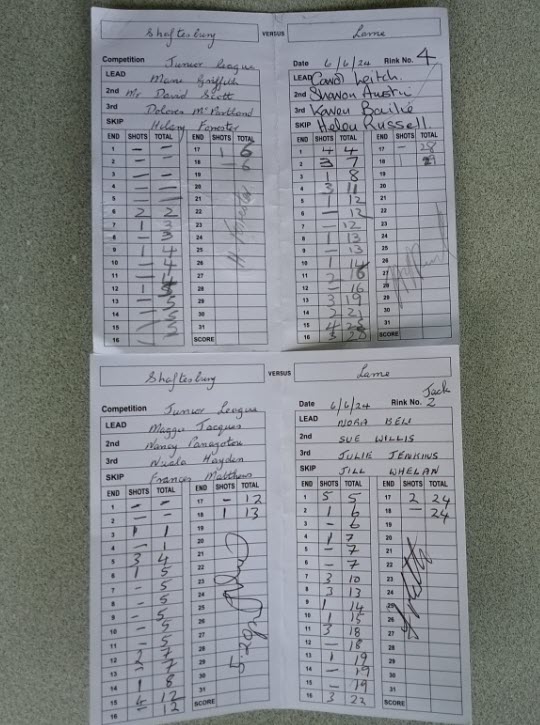 Shaftesbury VERSUS Larne
Competition Junior League
LEAD Marie Griffith
2nd Mr David Scott
3rd Dolores McPartland
SKIP Hilary Forrester
END SHOTS TOTAL END SHOTS TOTAL
1 - - 17 1 6
2 - - 18 - 6
3 - - 19
4 - - 20
5 - - 21
6 2 2 22
7 1 3 23
8 - 3 24
9 1 4 25
10 - 4 26
11 - 4 27
12 1 5 28
13 - 5 29
14 - 5 30
15 - 5 31
16 - 5 SCORE
H Forrester
Date 6/6/24 Rink No. 4
LEAD Carol Leitch.
2nd Sharon Austin
3rd Karen Bailie
SKIP Helen Russell
END SHOTS TOTAL END SHOTS TOTAL
1 4 4 17 - 28
2 3 7 18 29
3 1 8 19
4 3 11 20
5 1 12 21
6 - 12 22
7 - 12 23
8 1 13 24
9 - 13 25
10 1 14 26
11 2 16 27
12 - 16 28
13 3 19 29
14 2 21 30
15 4 25 31
16 3 28 SCORE
Shaftesbury VERSUS Larne
Competition Junior League
LEAD Maggie Jacques
2nd Nancy
3rd Nuala Hayden
SKIP Frances Matthews
END SHOTS TOTAL END SHOTS TOTAL
1 - - 17 - 12
2 - - 18 1 13
3 1 1 19
4 - 1 20
5 3 4 21
6 1 5 22
7 - 5 23
8 - 5 24
9 - 5 25
10 - 5 26
11 - 5 27
12 2 7 28
13 - 7 29
14 1 8 30
15 4 12 31
16 - 12 SCORE
Jack
Date 6/6/24 Rink No. 2
LEAD NORA BEW
2nd SUE WILLIS
3rd JULIE JENKINS
SKIP JILL WHELAN
END SHOTS TOTAL END SHOTS TOTAL
1 5 5 17 2 24
2 1 6 18 - 24
3 - 6 19
4 1 7 20
5 - 7 21
6 - 7 22
7 3 10 23
8 3 13 24
9 1 14 25
10 1 15 26
11 3 18 27
12 - 18 28
13 1 19 29
14 - 19 30
15 - 19 31
16 3 22 SCORE